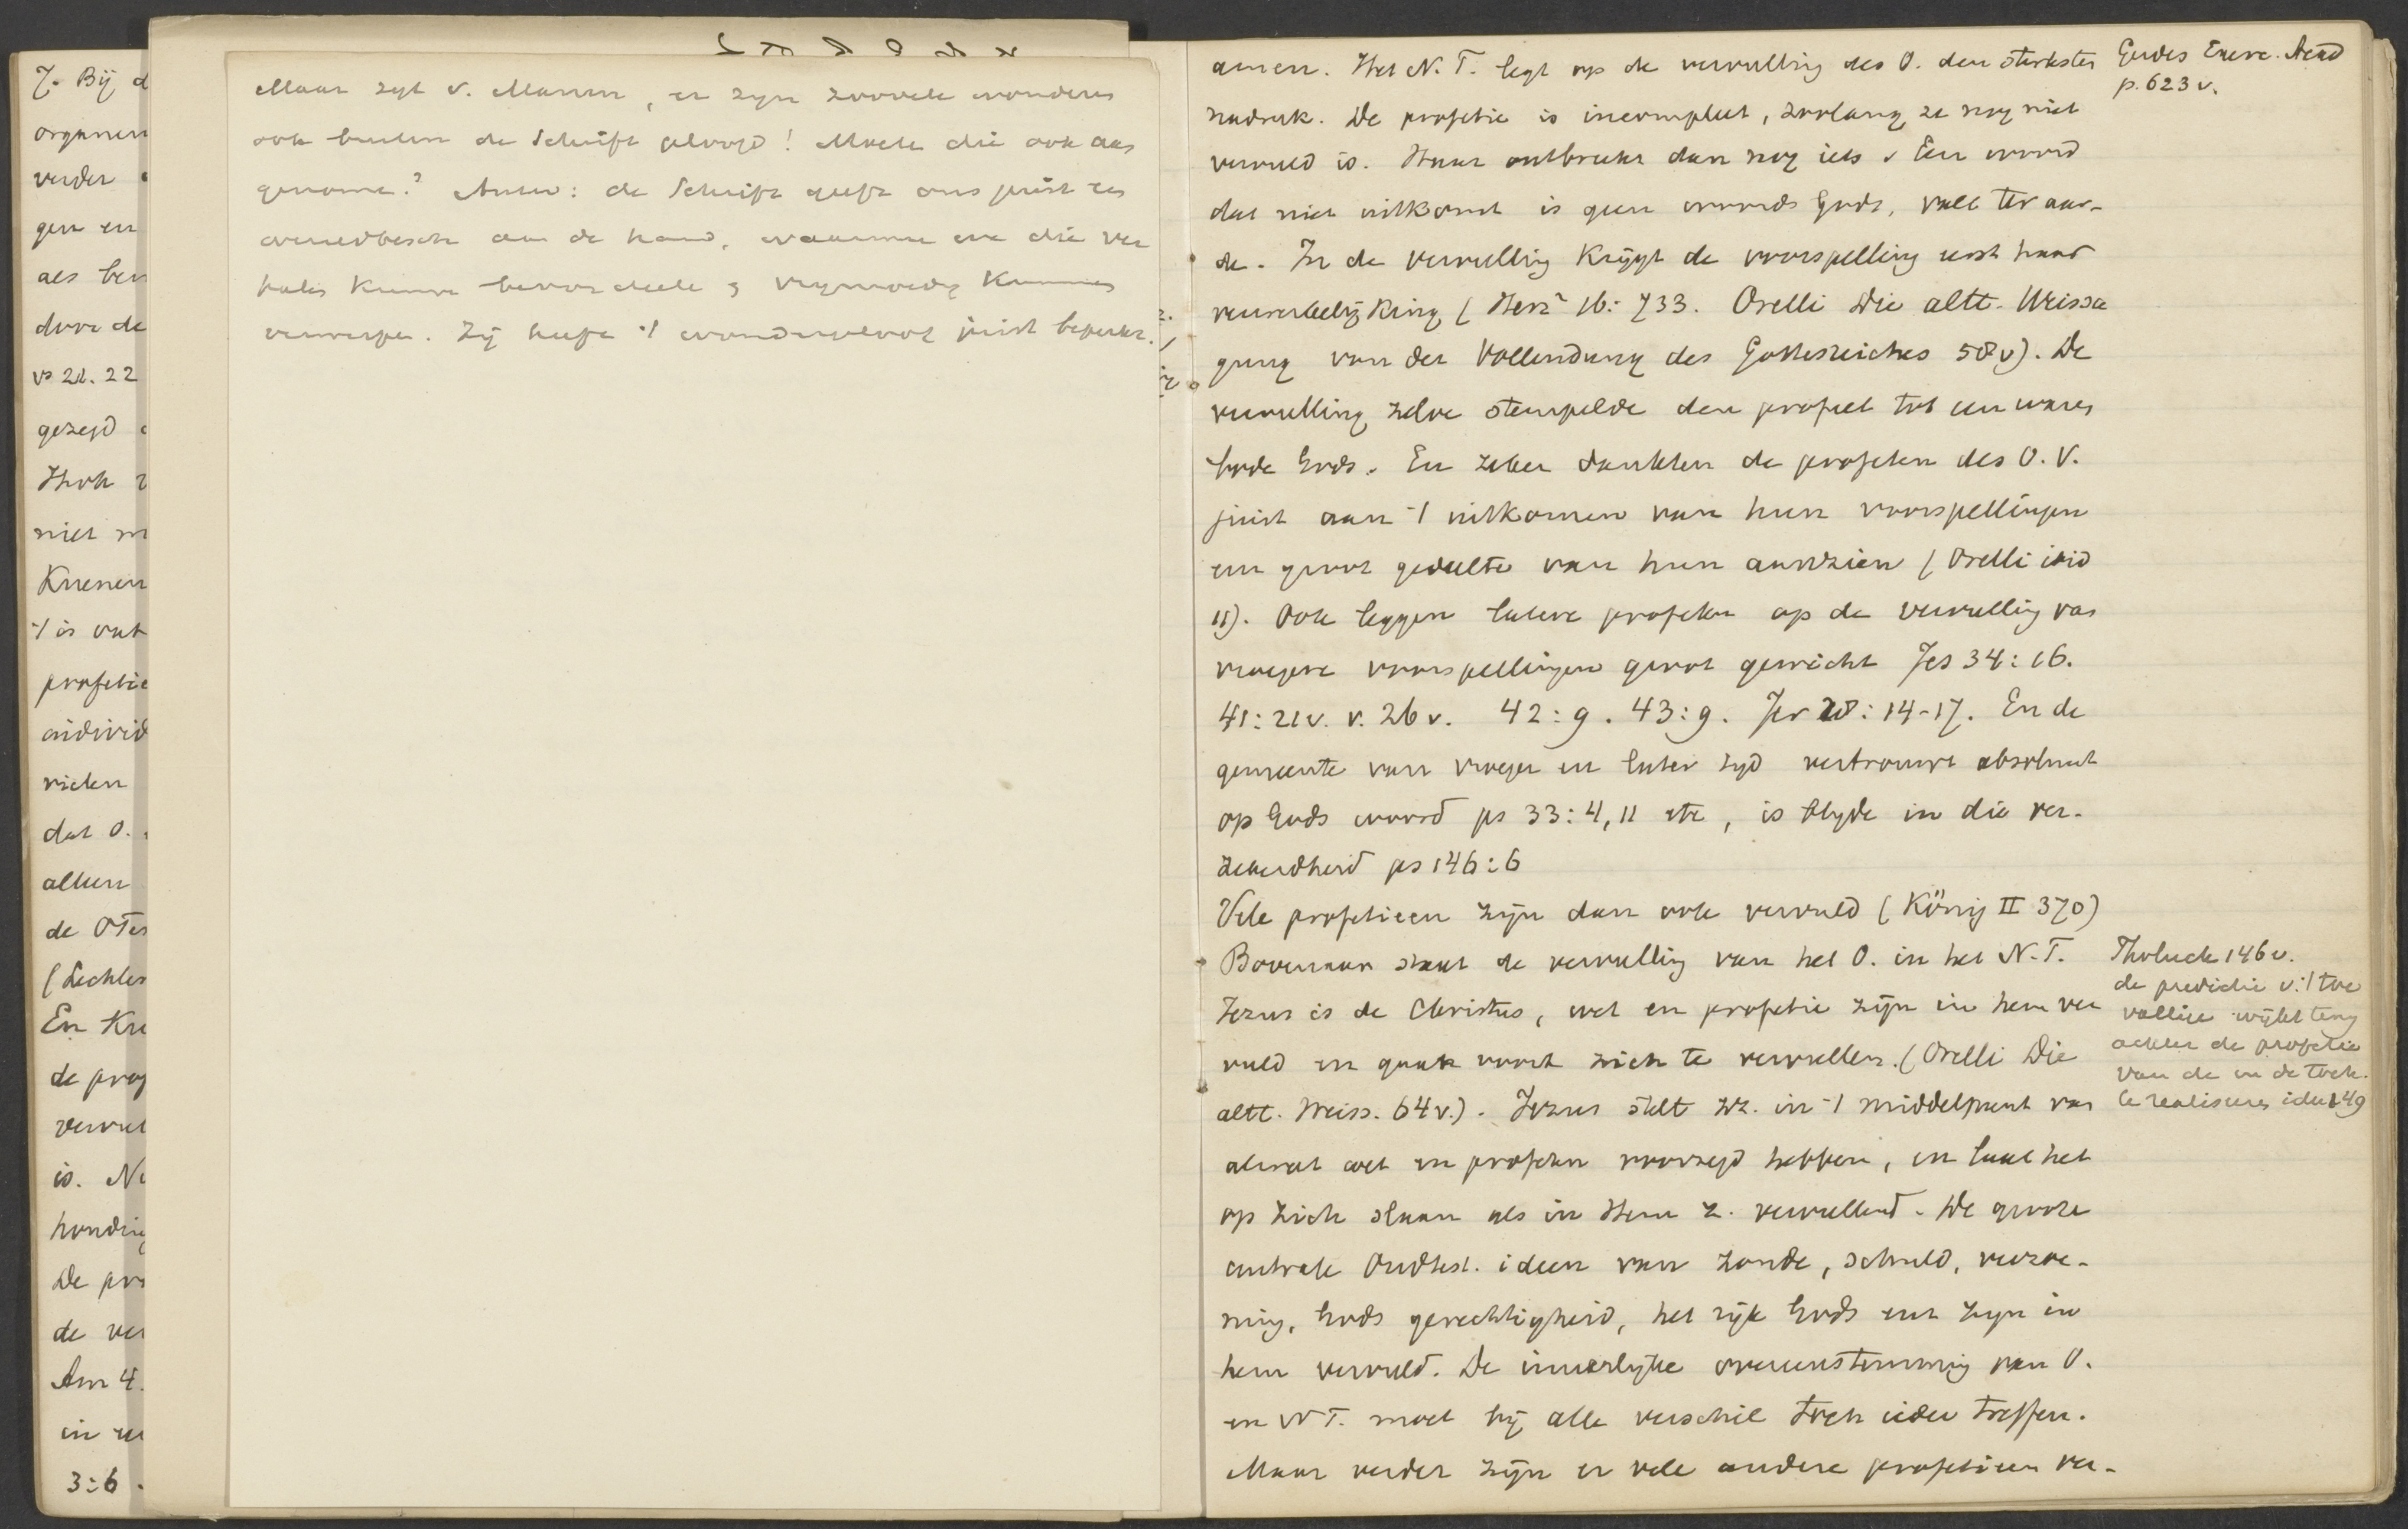 7. Bij d
organen
verder
gen en
als ben
door de
vs 21. 22
gezegd
Hoh
niet
Kuenen
't is
profetie
individ
rieten
dat O.
alleen
de OTes
(Lechler
En Kue
de prof
vervul
is. Ne
honding
De pro
de ver
Am 4.
in
3:6.
Maar zegt v. Manen, er zyn zoovele wonderen
ook buiten de Schrift geloofd! Moeten die ook aan
genomen? Antw: de Schrift geeft ons juist een
wereldbesch aan de hand, waarmee we die ver
halen kunnen beoordeelen & vrymoedig kunnen
verwerpen. Zij heeft 't wondergeloof juist beperkt.
amen. Het N. T. legt op de vervulling des O. den sterksten
nadruk. De profetie is incompleet, zoolang ze nog niet
vervuld is. Haar ontbreekt dan nog iets. Een woord
dat niet uitkomt is geen woord Gods, valt ter aar-
de. In de vervulling krijgt de voorspelling eerst haar
verwerkelijking (Herz² 16: 733. Orelli Die altt. Weissa
gung von der Vollendung des Gottesreiches 58v). De
vervulling zelve stempelde den profeet tot een waren
bode Gods. En zeker dankten de profeten des O. V.
juist aan 't uitkomen van hun voorspellingen
een groot gedeelte van hun aanzien (Orelli ibid
11). Ook leggen latere profeten op de vervulling van
vroegere voorspellingen groot gewicht Jes 34:16.
41:21v. v. 26v. 42:9. 43:9. Jer 28:14-17. En de
gemeente van vroeger en later tyd vertrouwt absoluut
op Gods woord ps 33:4, 11 etc, is blyde in die ver-
zekerdheid ps 146:6
Vele profetieen zijn dan ook vervuld (König II 370)
Bovenaan staat de vervulling van het O. in het N. T.
Jezus is de Christus, wet en profetie zijn in hem ver
vuld en gaan voort zich te vervullen. (Orelli Die
altt. Weiss. 64v.). Jezus stelt zz. in 't middelpunt van
alwat wet en profeten voorzegd hebben, en laat het
op zich slaan als in Hem z. vervullend. De groote
centrale Oudtest. ideen van zonde, schuld, verzoe-
ning, Gods gerechtigheid, het rijk Gods enz zyn in
hem vervuld. De innerlyke overeenstemming van O.
en N T. moet bij alle verschil toch ieder treffen.
Maar verder zijn er vele andere profetieen ver-
Gerdes Exerc. Acad
p. 623 v.
Tholuck 146 v.
de predictie v. 't toe
vallige wijkt terug
achter de profetie
van de in de toek.
te realiseren idee 149